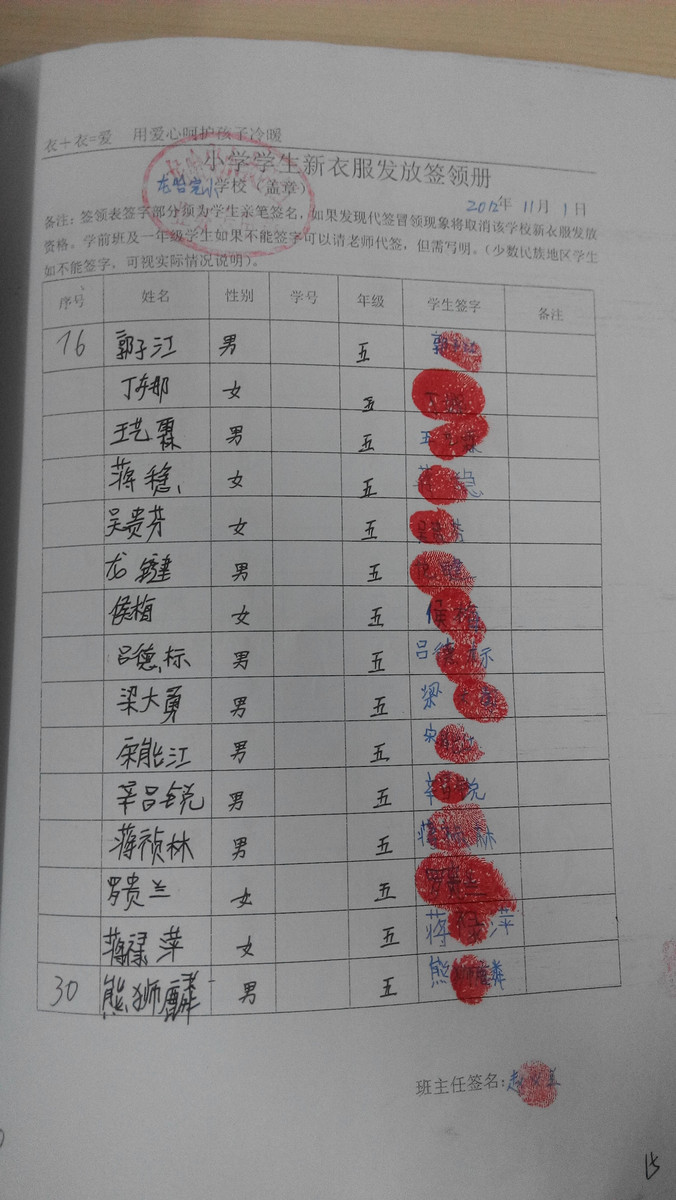 衣+衣=爱 用爱心呵护孩子冷暖
小学学生新衣服发放签领册
龙哈完小学校（盖章） 2012年 11月 1日
备注：签领表签字部分须为学生亲笔签名，如果发现代签冒领现象将取消该学校新衣服发放
资格。学前班及一年级学生如果不能签字可以请老师代签，但需写明。（少数民族地区学生
如不能签字，可视实际情况说明）。
序号 姓名 性别 学号 年级 学生签字 备注
16 郭子江 男 五 郭子江
女 五
王艺霖 男 五 王艺霖
蒋稳 女 五 蒋稳
吴贵芬 女 五 吴贵芬
龙键 男 五 龙键
侯梅 女 五 侯梅
吕德标 男 五 吕德标
梁大勇 男 五 梁大勇
宋能江 男 五 宋能江
辛吕锐 男 五 辛吕锐
蒋祯林 男 五 蒋祯林
罗贵兰 女 五 罗贵兰
蒋禄萍 女 五 蒋禄萍
30 熊狮麟 男 五 熊狮麟
班主任签名：赵
15